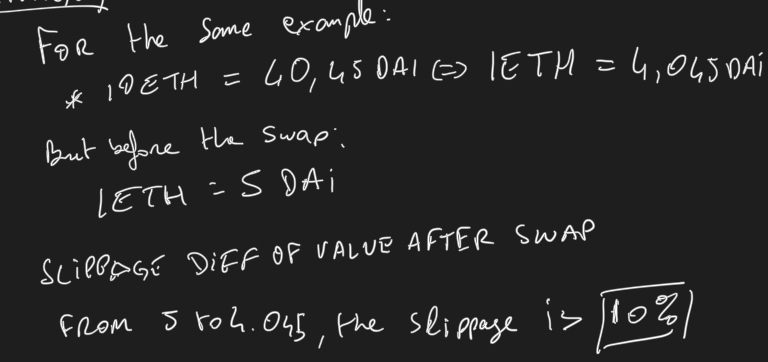 FOR the same example:
* 10ETH = 40,45 DAI ⇔ 1ETH = 4,045 DAi
But before the swap:
1ETH = 5 DAi
SLIPPAGE DIFF OF VALUE AFTER SWAP
FROM 5 to 4.045, the slippage is 10%